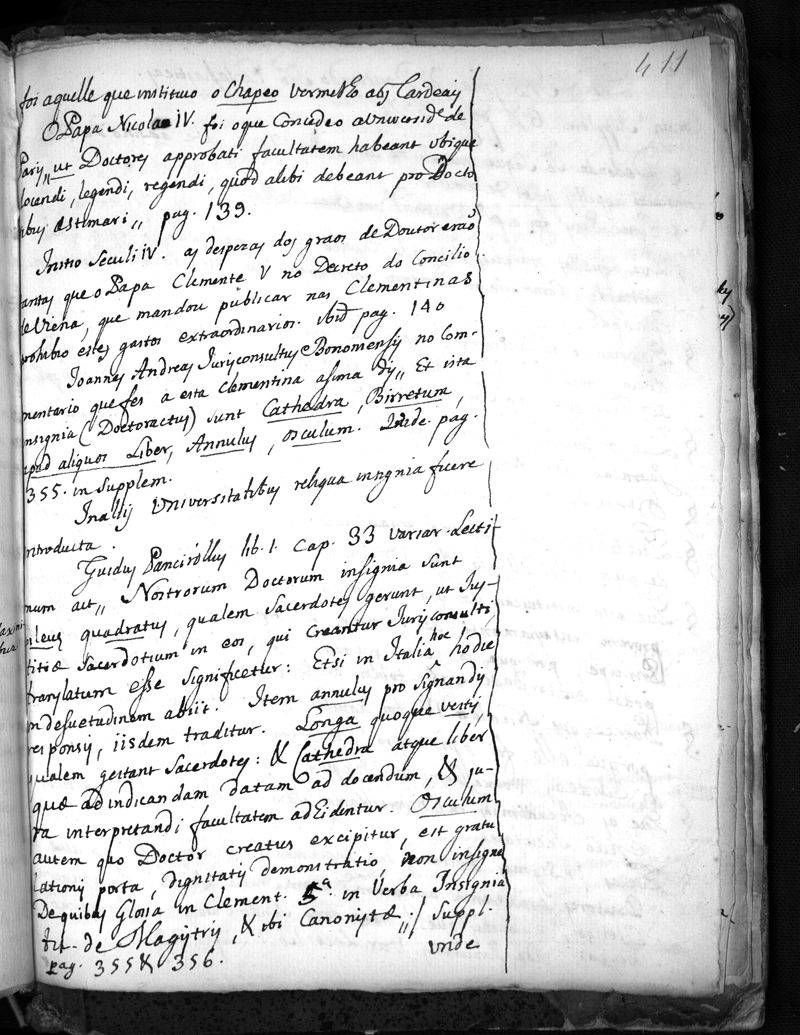 411
foi aquelle que instituio o Chapeo vermelho aos Cardeais
O Papa Nicolao IV. foi o que Concedeo a Universid.e de
Paris,, ut Doctores approbati facultatem habeant ubique
docendi, legendi, regendi, quod alibi debeant pro Docto
ribus æstimari,, pag. 139.
Initio Seculi IV. as despezas dos graos de Doutor erão
tantas que o Papa Clemente V no Decreto do Concilio
de Viena, que mandou publicar nas Clementinas
prohibio estes gastos extraordinarios. ibid pag. 140
Joannes Andreas Jurisconsultus Bononiensis no Com-
mentario que fes a esta Clementina asima dis,, Et ista
insignia (Doctoractus) sunt Cathedra, Birretum,
apud aliquos Liber, Annulus, osculum. Vide. pag.
355. in Supplem.
In aliis Universitatibus reliqua insignia fuere
introducta.
Guidus Pancirollus lib. 1. Cap. 33 variar. Lecti-
num ait,, Nostrorum Doctorum insignia sunt
pileus quadratus, qualem Sacerdotes gerunt, ut Jus-
titiæ Sacerdotium in eos, qui creantur Jurisconsulti
translatum esse significetur: Etsi in Italia hoc hodie
in desuetudinem abiit. Item annulus pro signandis
responsis, iisdem traditur. Longa quoque vestis,
qualem gestant Sacerdotes: & Cathedra atque liber
quæ ad indicandam datam ad docendum, & ju-
ra interpretandi facultatem adEidentur. Osculum
autem quo Doctor creatus excipitur, est gratu
lationis porta, dignitatis demonstratio non insigne
De quibus Glosa in Clement. 5a. in Verba Insignia
tit. de Magistris, & ibi Canonistæ,,/ Suppl.
pag. 355 & 356.
vide